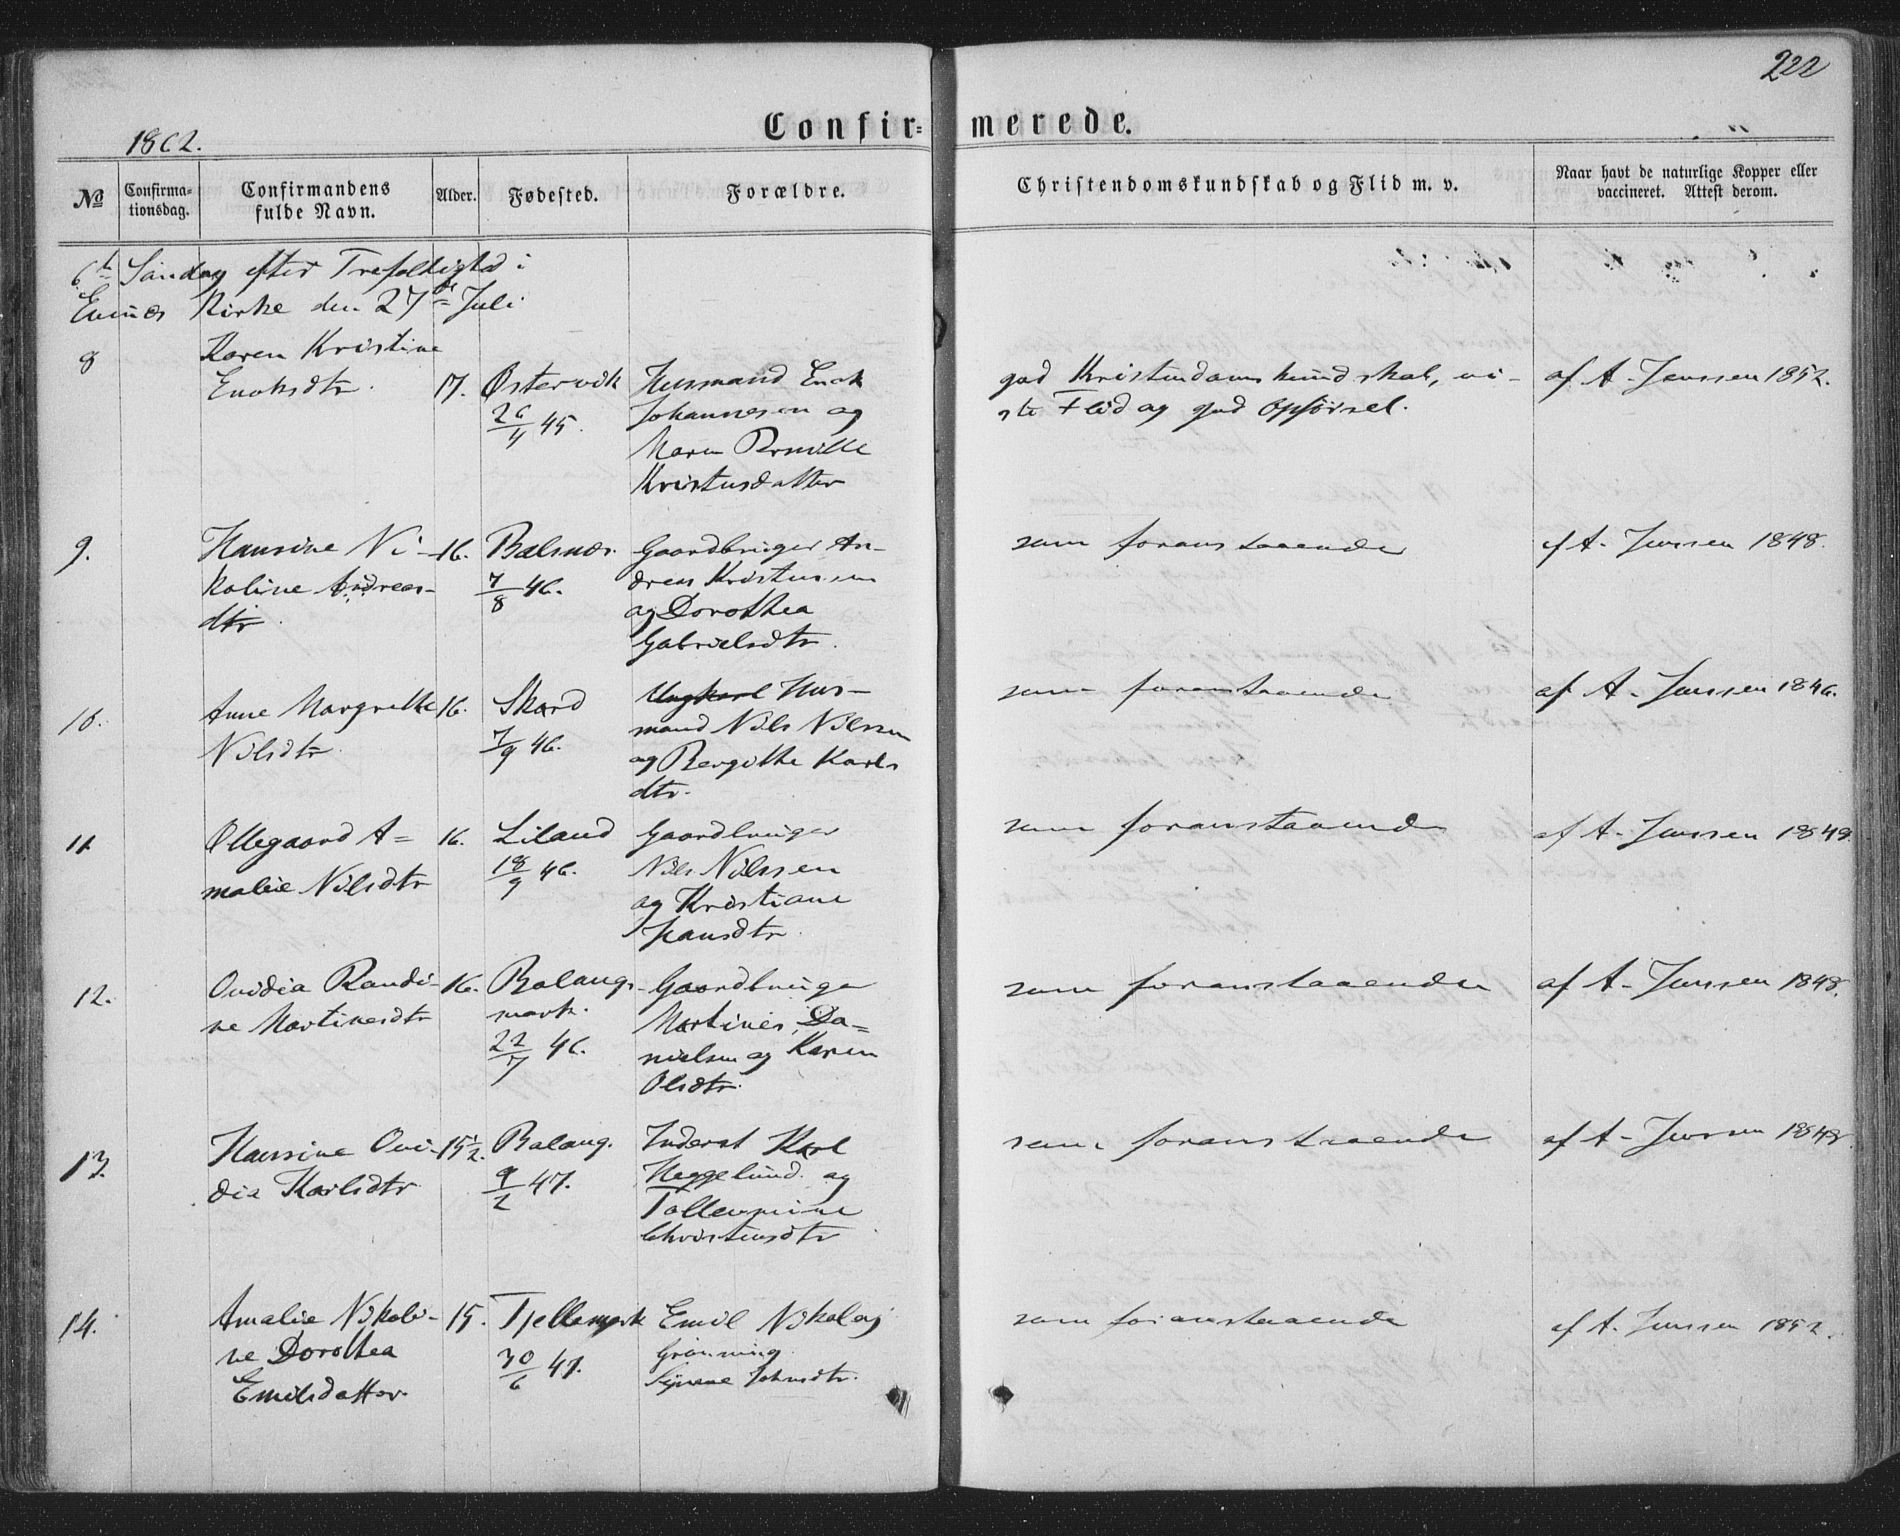 222
1862.
Confir= merede.
No
Confirma-
tionsdag.
Confirmandens
fulde Navn.
Alder.
Fødested.
Forældre.
Christendomskundskab og Flid m. v.
Naar havt de naturlige Kopper eller
vaccineret. Attest derom.
6te Søndag efter Trefoldighed i
Evenæs Kirke den 27de Juli
8
Karen Kristine
Enoksdtr.
17.
Østervik
26/4 45.
Husmand Enok
Johannesen og
Maren Pernille
Kristensdatter
god Kristendomskundskab, vi-
ste Flid og god Opførsel.
af A. Jenssen 1852.
9.
Hansine Ni-
koline Andreas-
dtr.
16.
Balsnes.
7/8 46.
Gaardbruger An-
dreas Kristensen
og Dorothea
Gabrielsdtr.
som foranstaaende
af A. Jenssen 1848.
10.
Anne Margrethe
Nilsdtr.
16.
Skard
7/9 46.
Ungkarl Hus-
mand Nils Nilssen
og Bergitte Karls
dtr.
som foranstaaende
af A. Jenssen 1846.
11.
Ollegaard A=
malie Nilsdtr
16.
Liland
18/9 46.
Gaardbruger
Nils Nilssen
og Kristiane
Hansdtr.
som foranstaaende
af A. Jenssen 1848.
12.
Ovidia Randi-
ne Martinesdtr
16.
Balangs-
mark.
22/7 46.
Gaardbruger
Martines Da=
nielsen og Karen
Olsdtr.
som foranstaaende
af A. Jenssen 1848.
13.
Hansine Ovi-
dia Karlsdtr
15½.
Balang.
9/2 47.
Inderst Karl
Heggelund og
Tollevmine
Christensdtr
som foranstaaende
af A. Jenssen 1848.
14.
Amalie Nikoli-
ne Dorothea
Emilsdatter.
15.
Tjellemark
30/6 47.
Emil Nikolaj
Grønning
Johnsdtr.
som foranstaaende
af A. Jenssen 1852.